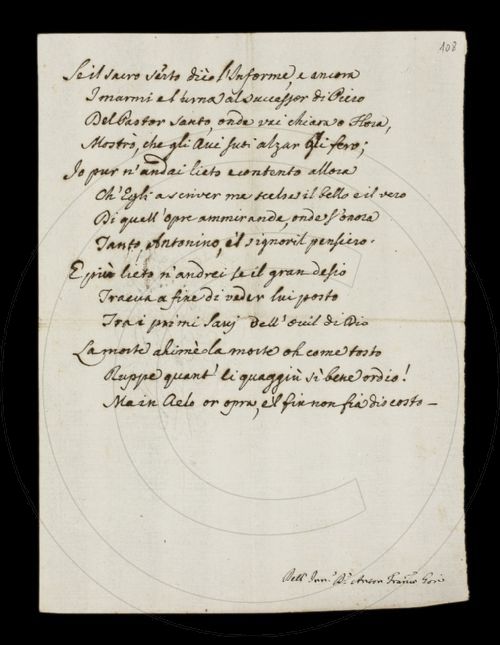 108
Se il sacro serto diè l'Informe, e ancora
I marmi e l'urna al successor di Piero
Del Pastor Santo, onde vai chiara o Flora,
Mostrò, che gli Avi suoi alzar gli fero;
Io pur n'andai lieto e contento allora
Ch'Egli a scriver me scelse il bello e il vero
Di quell'opre ammirande, onde s'onora
Tanto, Antonino, e'l signoril pensiero.
E più lieto n'andrei se il gran desio
Traeva a fine di veder lui posto
Tra i primi Savj dell' Ovil di Dio
La morte ahimè la morte oh come tosto
Ruppe quant' Ei quaggiù sì bene ordio!
Ma in Cielo or opra, e'l fin non fia discosto —
Dell' Anton Franc.o Gori